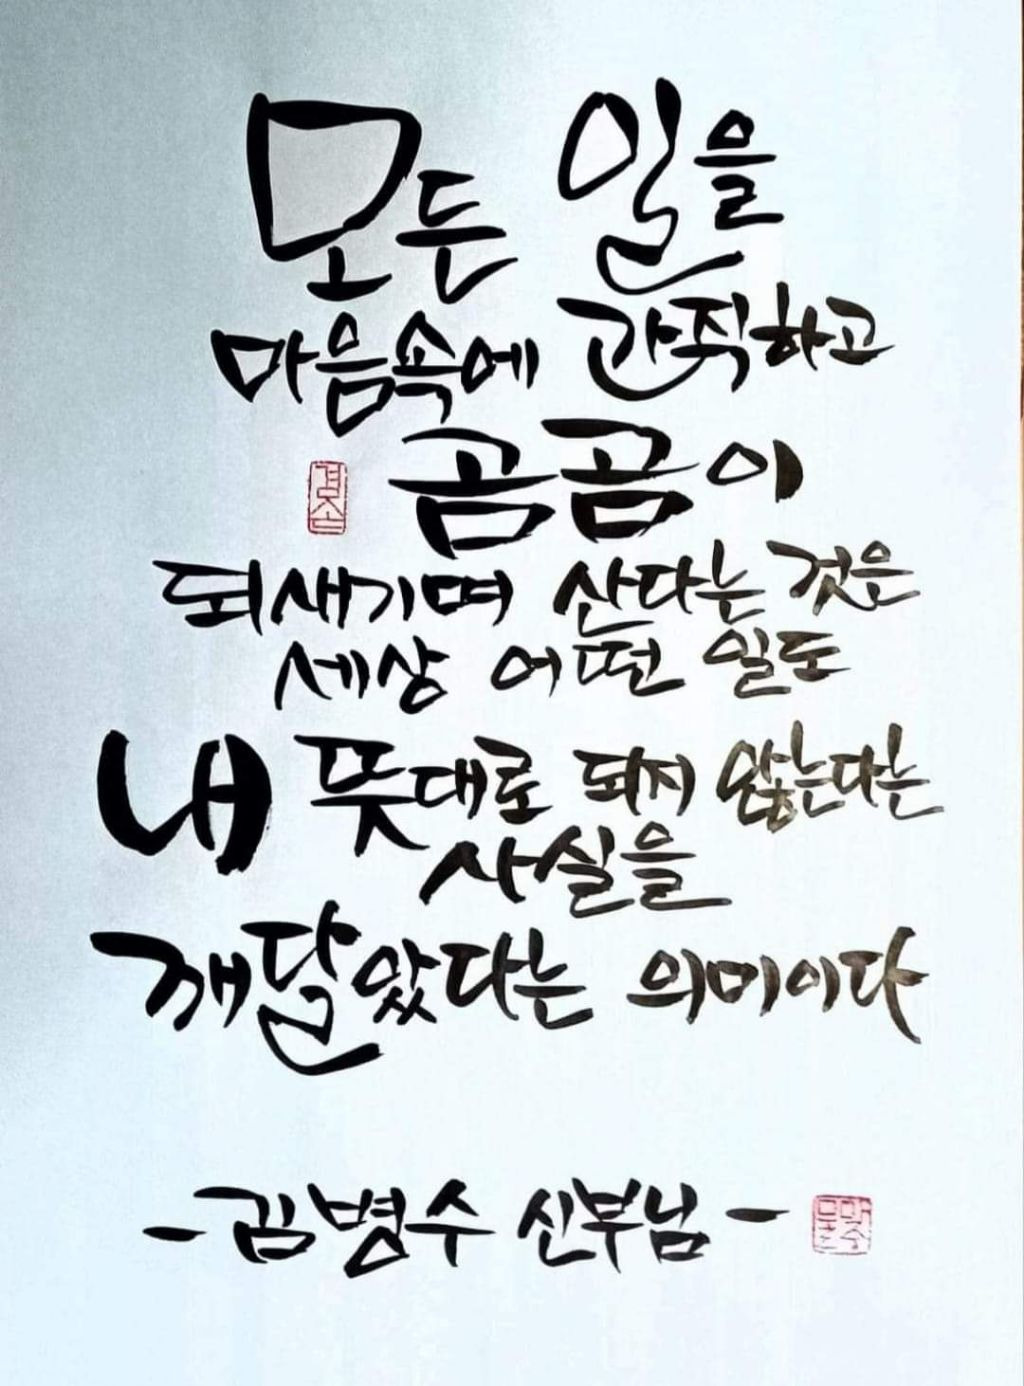 모든 일을
마음속에 간직하고
곰곰이
겸손
되새기며 산다는 것은
세상 어떤 일도
내 뜻대로 되지 않는다는
사실을
깨달았다는 의미이다
-김병수 신부님-